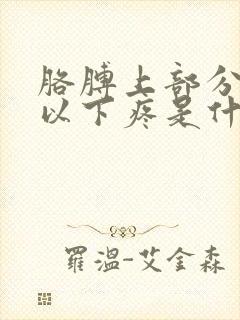 胳膊上部分
以下疼是什
羅溫-艾金森